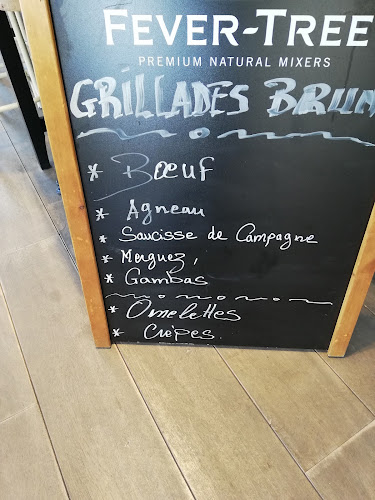 FEVER-TREE
PREMIUM NATURAL MIXERS
GRILLADES BRUN
* Bœuf
* Agneau
* Saucisse de Campagne
* Merguez,
* Gambas
* Omelettes
* Crêpes.